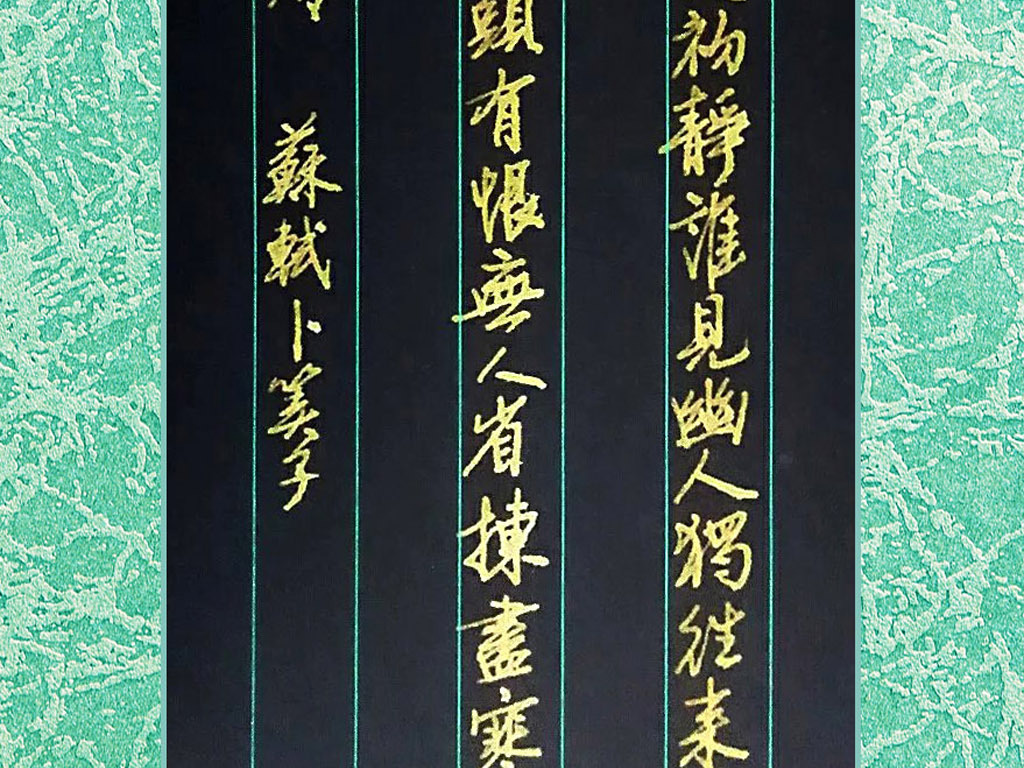 初靜誰見幽人獨往来
頭有恨無人省揀盡寒
蘇軾卜算子